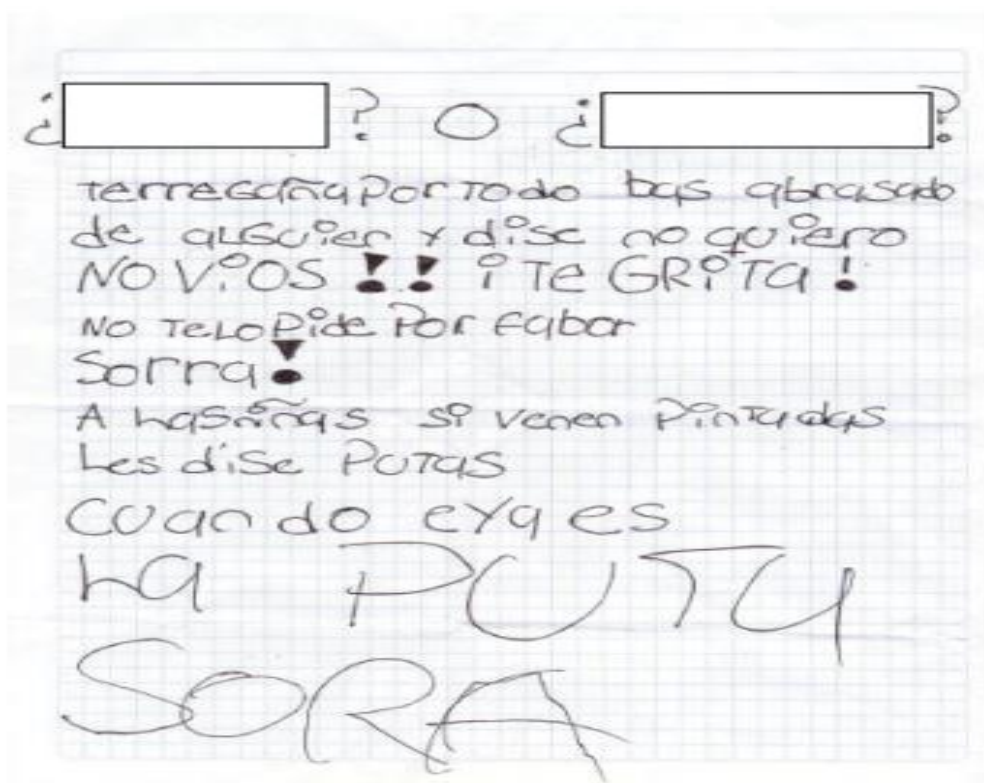 ¿ ? O ¿ ?
Terregaña Por Todo bas abrasado
de alguier y dise no quiero
NO ViOS !! i Te GRiTa !
NO TeLo Pide Por Fabor
Sorra!
A Las niñas si venen Pintadas
Les dise PuTas
Cuando eya es
La PUTa
SORA